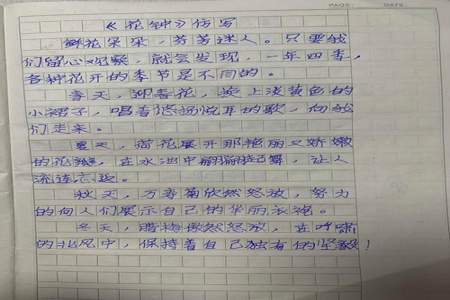 《花钟》仿写
鲜花朵朵，芬芳迷人。只要我
们留心观察，就会发现，一年四季，
各种花开的季节是不同的。
春天，迎春花，换上淡黄色的
小裙子，唱着悠扬悦耳的歌，向我
们走来。
夏天，荷花展开那艳丽又娇嫩
的花瓣，在水池中翩翩起舞，让人
流连忘返。
秋天，万寿菊欣然怒放，努力
的向人们展示自己的华丽衣裳。
冬天，腊梅傲然怒放，在呼啸
的北风中，保持着自己独有的坚毅！